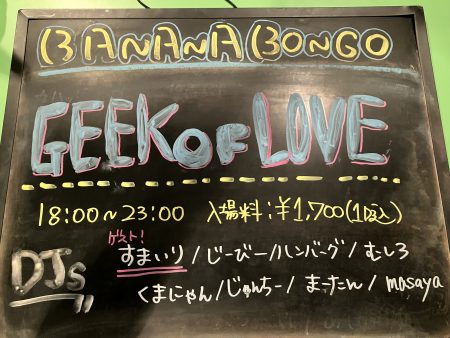 BANANA BONGO
GEEK OF LOVE
18:00~23:00 入場料:¥1,700(1D込)
ゲスト!
DJs すまいり/じーびー/ハンバーグ/むしろ
くまにゃん/じゅんちー/まーたん/masaya